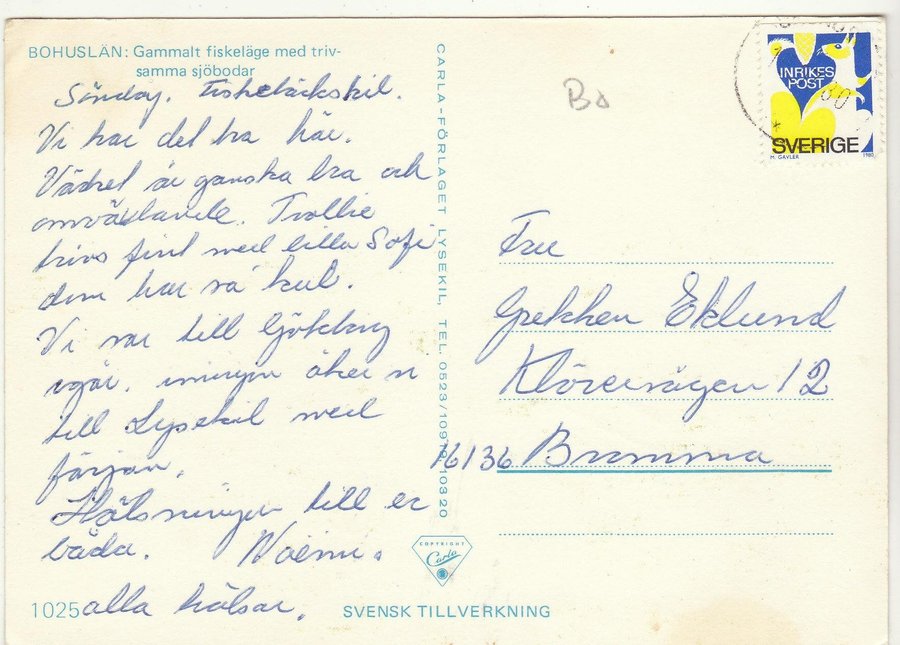 BOHUSLÄN: Gammalt fiskeläge med triv-
samma sjöbodar
Söndag. Fiskebäckskil.
Vi har det bra här.
Vädret är ganska bra och
omväxlande. Trollie
trivs fint med lilla Sofi
dom har så kul.
Vi var till Götebörg
igår. imorgon åker vi
till Lysekil med
färjan.
Hälsningen till er
båda. Noémi.
alla hälsar.
1025
SVENSK TILLVERKNING
CARLA-FÖRLAGET LYSEKIL, TEL. 0523/10970, 10320
COPYRIGHT
Carla
INRIKES
POST
80
SVERIGE
M. GAVLER 1980
Fru
Eklund
12
16136 Bromma